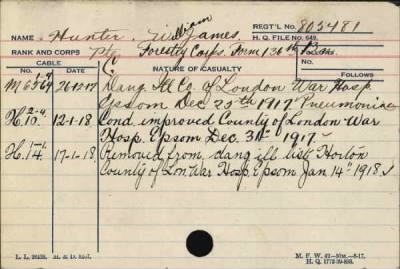 William
NAME Hunter, James. REGT'L NO. 805481
H. Q. FILE NO. 649.
RANK AND CORPS Pte Forestry Corps. Form 136th Batt.
CABLE NATURE OF CASUALTY
NO. DATE FOLLOWS
M6564 26-12-17 Dang. Ill Co. of London War Hosp.
Epsom Dec 25th 1917 Pneumonia
2-4
H.10 12-1-18 Cond. improved County of London War
Hosp. Epsom Dec. 31st 1917
1-1
H.14 17-1-18 Removed from dang ill list Horton
County of Lon War Hosp. Epsom Jan 14th 1918
L. L. M. & D.
M. F. W. 42-50M.-8-17.
H. Q. 1772-39-893.